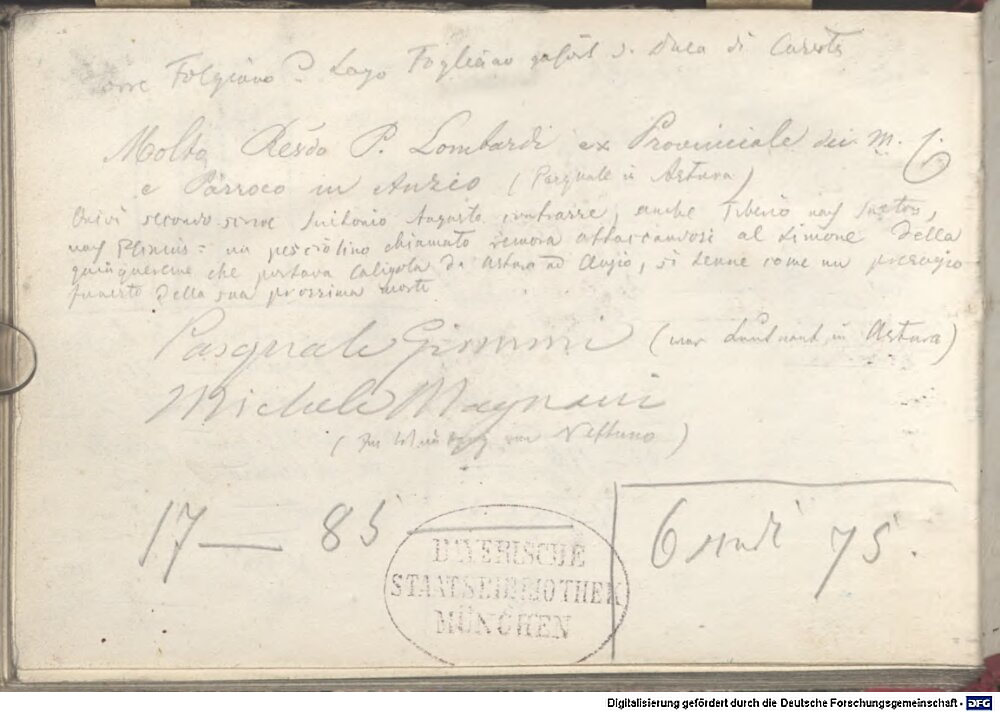 Torre Folgiano? Lago Fogliano gehört d. Duca di Caserta
Molto Revdo P. Lombardi ex Provinciale dei M.
e Parroco in Anzio (Pasquale in Astura)
Quivi secondo Suitonio Augusto contrasse, anche Tiberio nach Sueton,
nach Plinius: un pesciolino chiamato remora attaccandosi al timone della
quinquereme che portava Caligola da Astura ad Anzio, si tenne come un presagio
funesto della sua prossima morte
Pasquale (war Lieutnant in Astura)
Michele Magnani
(von Nettuno)
17 — 85
6 scudi 75.
BAYERISCHE
STAATSBIBLIOTHEK
MÜNCHEN
Digitalisierung gefördert durch die Deutsche Forschungsgemeinschaft - DFG